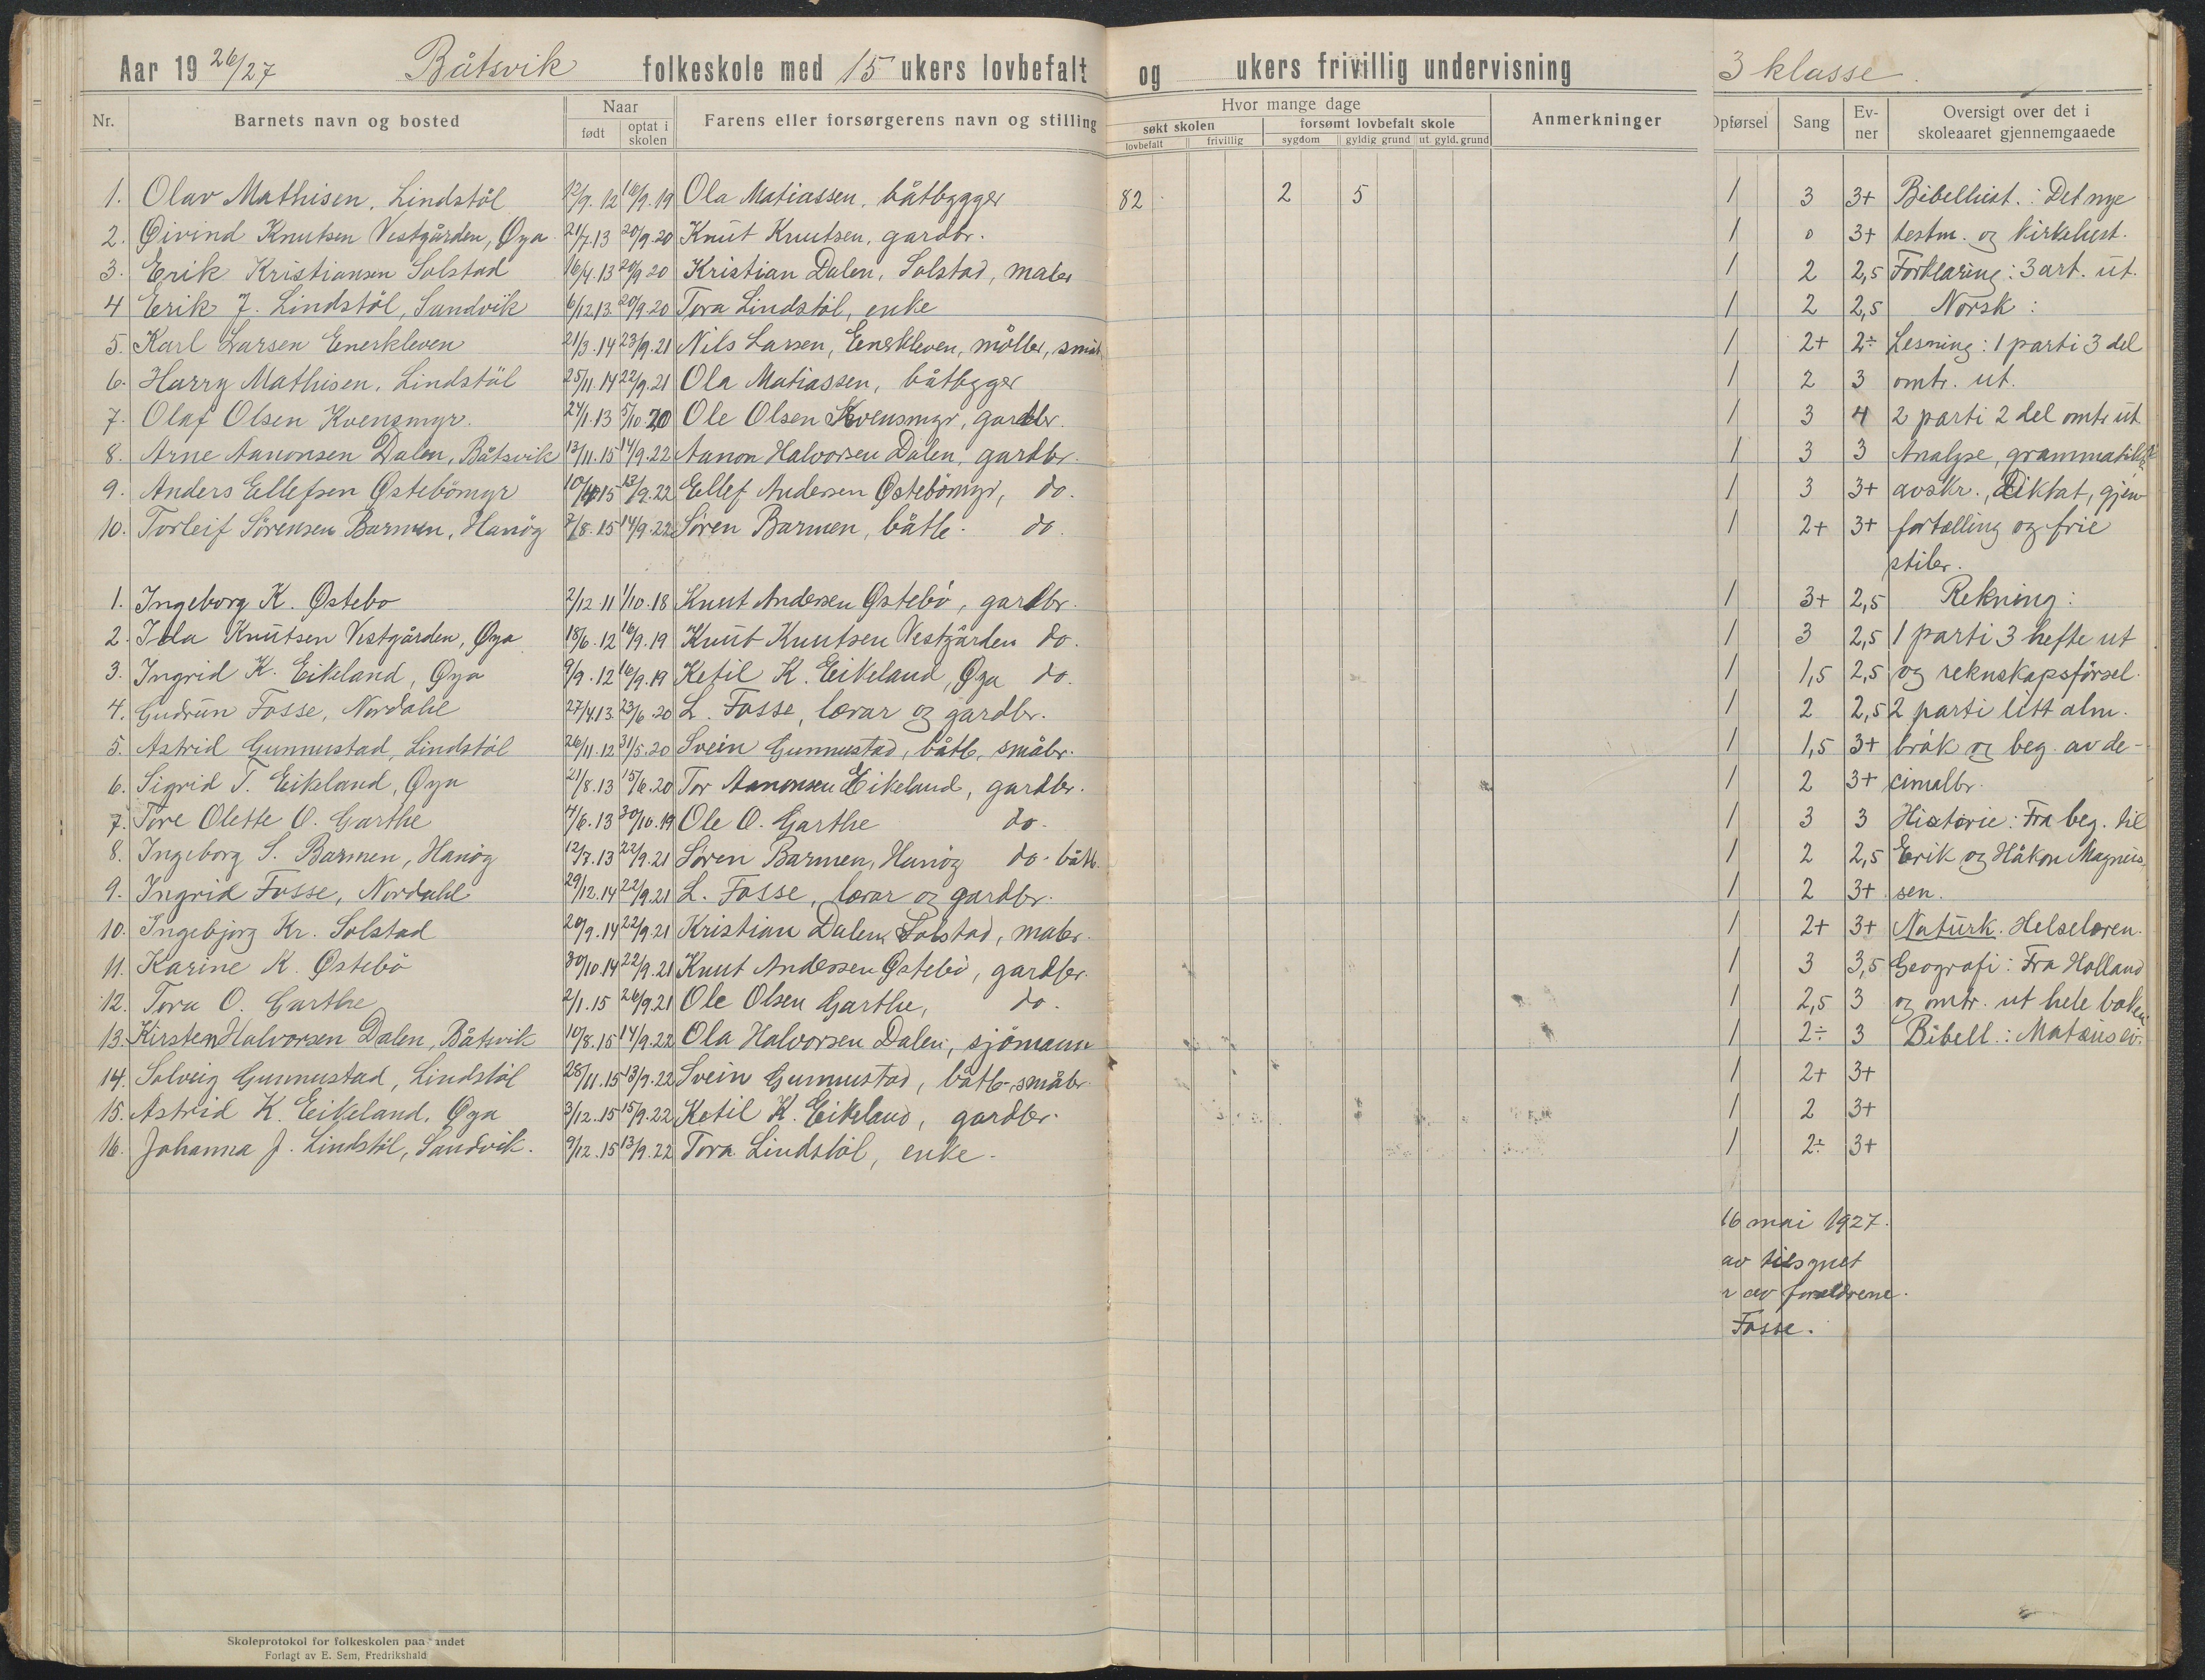 Aar 19 26/27 Båtsvik folkeskole med 15 ukers lovbefalt og ukers frivillig undervisning 3 klasse.
Nr. Barnets navn og bosted Naar født optat i skolen Farens eller forsørgerens navn og stilling Hvor mange dage søkt skolen lovbefalt frivillig forsømt lovbefalt skole sygdom gyldig grund ut. gyld. grund Anmerkninger Opførsel Sang Evner Oversigt over det i skoleaaret gjennemgaaede
1. Olav Mathisen, Lindstöl 12/9.12 16/9.19 Ola Matiassen, båtbyggger 82 2 5 1 3 3+ Bibelhist.: Det nye
2. Øivind Knutsen Vestgården, Øya 21/7.13 20/9.20 Knut Knutsen, gardbr. 1 0 3+ testm. og kirkehist.
3. Erik Kristiansen Solstad 16/4.13 20/9 20 Kristian Dalen, Solstad, maler 1 2 2,5 Forklaring: 3 art. ut.
4 Erik J. Lindstöl, Sandvik 6/12.13. 20/9.20 Tora Lindstöl, enke 1 2 2,5 Norsk:
5. Karl Larsen Enerkleven 21/3.14 23/9.21 Nils Larsen, Enerkleven, möller, småb. 1 2+ 2÷ Lesning: 1 parti 3 del
6. Harry Mathisen, Lindstöl 25/11.14 22/9.21 Ola Matiassen, båtbygger 1 2 3 omtr. ut.
7. Olaf Olsen Kvensmyr. 24/1.13 5/10.20 Ole Olsen Kvensmyr, gardbr. 1 3 4 2 parti 2 del omtr ut.
8. Arne Aanonsen Dalen, Båtsvik 13/11.15 14/9.22 Aanon Halvorsen Dalen, gardbr. 1 3 3 Analyse, grammatikk
9. Anders Ellefsen Østebömyr 10/4 15 13/9.22 Ellef Andersen Østebömyr, do. 1 3 3+ avskr., diktat, gjen-
10. Torleif Sörensen Barmen, Hanöy 7/8.15 14/9.22 Sören Barmen, båtb. do. 1 2+ 3+ fortelling og frie
stiler.
1. Ingeborg K. Østebo 2/12.11 1/10.18 Knut Andersen Østebö, gardbr. 1 3+ 2,5 Rekning:
2. Ida Knutsen Vestgården, Øya 18/6.12 16/9.19 Knut Knutsen Vestgården do. 1 3 2,5 1 parti 3 hefte ut
3. Ingrid K. Eikeland, Øya 9/9.12 16/9.19 Ketil K. Eikeland, Øya do. 1 1,5 2,5 og rekneskapsförsel.
4. Gudrun Fosse, Nordahl 27/4.13. 23/6.20 L. Fosse, lærar og gardbr. 1 2 2,5 2 parti litt alm.
5. Astrid Gunnustad, Lindstöl 26/11.12 31/5.20 Svein Gunnustad, båtb, småbr. 1 1,5 3+ bråk og beg. av de-
6. Sigrid T. Eikeland, Øya 21/8.13 15/6.20 Tor Aanonsen Eikeland, gardbr. 1 2 3+ cimalbr.
7. Tore Olette O. Garthe 4/6.13 30/10.19 Ole O. Garthe do. 1 3 3 Historie: Fra beg. til
8. Ingeborg S. Barmen, Hanöy 12/7.13 22/9.21 Sören Barmen, Hanöy do. båtb. 1 2 2,5 Erik og Håkon Magnus-
9. Ingrid Fosse, Nordahl 29/12.14 22/9.21 L. Fosse, lærar og gardbr. 1 2 3+ sen.
10. Ingebjørg Kr. Solstad 20/9.14 22/9.21 Kristian Dalen, Solstad, maler. 1 2+ 3+ Naturk. Helselæren.
11. Karine K. Østebö 30/10.14 22/9.21 Knut Andersen Østebö, gardbr. 1 3 3,5 Geografi: Fra Holland
12. Tora O. Garthe 2/1.15 26/9.21 Ole Olsen Garthe, do. 1 2,5 3 og omtr. ut hele boken
13. Kirsten Halvorsen Dalen, Båtsvik 10/8.15 14/9.22 Ola Halvorsen Dalen, sjömann 1 2÷ 3 Bibell.: Mateus ev.
14. Solveig Gunnustad, Lindstöl 28/11.15 13/9.22 Svein Gunnustad, båtb, småbr. 1 2+ 3+
15. Astrid K. Eikeland, Øya 3/12.15 15/9.22 Ketil K. Eikeland, gardbr. 1 2 3+
16. Johanna J. Lindstöl, Sandvik. 9/12.15 13/9.22 Tora Lindstöl, enke. 1 2÷ 3+
16 mai 1927.
av tilsynet
av foreldrene.
Fosse.
Skoleprotokol for folkeskolen paa landet
Forlagt av E. Sem, Fredrikshald